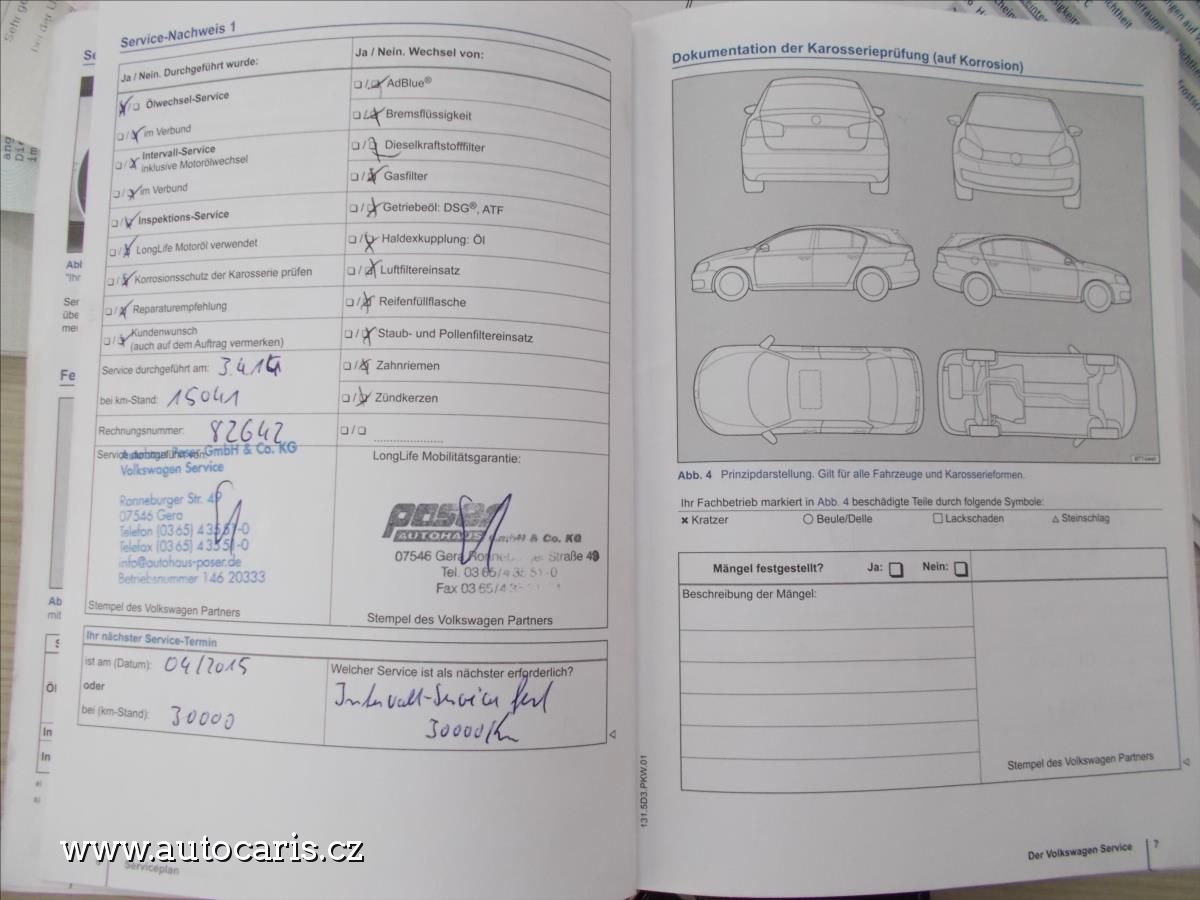 Service-Nachweis 1
Ja / Nein. Durchgeführt wurde:
Ölwechsel-Service
im Verbund
Intervall-Service
inklusive Motorölwechsel
im Verbund
Inspektions-Service
LongLife Motoröl verwendet
Korrosionsschutz der Karosserie prüfen
Reparaturempfehlung
Kundenwunsch
(auch auf dem Auftrag vermerken)
Service durchgeführt am: 3.4.14
bei km-Stand: 15041
Rechnungsnummer: 82642
GmbH & Co. KG
Volkswagen Service
Ronneburger Str. 49
07546 Gera
Telefon (03 65) 4 35 51-0
Telefax (03 65) 4 35 51-0
info@autohaus-poser.de
Betriebsnummer 146 20333
Stempel des Volkswagen Partners
Ja / Nein. Wechsel von:
AdBlue®
Bremsflüssigkeit
Dieselkraftstofffilter
Gasfilter
Getriebeöl: DSG®, ATF
Haldexkupplung: Öl
Luftfiltereinsatz
Reifenfüllflasche
Staub- und Pollenfiltereinsatz
Zahnriemen
Zündkerzen
LongLife Mobilitätsgarantie:
poser
AUTOHAUS GmbH & Co. KG
07546 Gera Straße 49
Tel. 03 65/4 35 51-0
Fax 03 65/4
Stempel des Volkswagen Partners
Ihr nächster Service-Termin
ist am (Datum): 04/2015
oder
bei (km-Stand): 30000
Welcher Service ist als nächster erforderlich?
Intervall-Service fest
30000 Km
Serviceplan
Dokumentation der Karosserieprüfung (auf Korrosion)
Abb. 4 Prinzipdarstellung. Gilt für alle Fahrzeuge und Karosserieformen.
Ihr Fachbetrieb markiert in Abb. 4 beschädigte Teile durch folgende Symbole:
Kratzer Beule/Delle Lackschaden Steinschlag
Mängel festgestellt? Ja: Nein:
Beschreibung der Mängel:
Stempel des Volkswagen Partners
131.5D3.PKW.01
Der Volkswagen Service 7
www.autocaris.cz